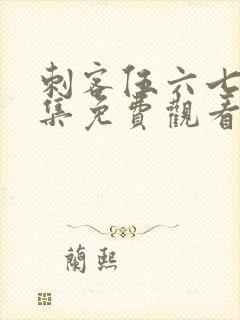 刺客伍六七
集免費觀看
蘭熙